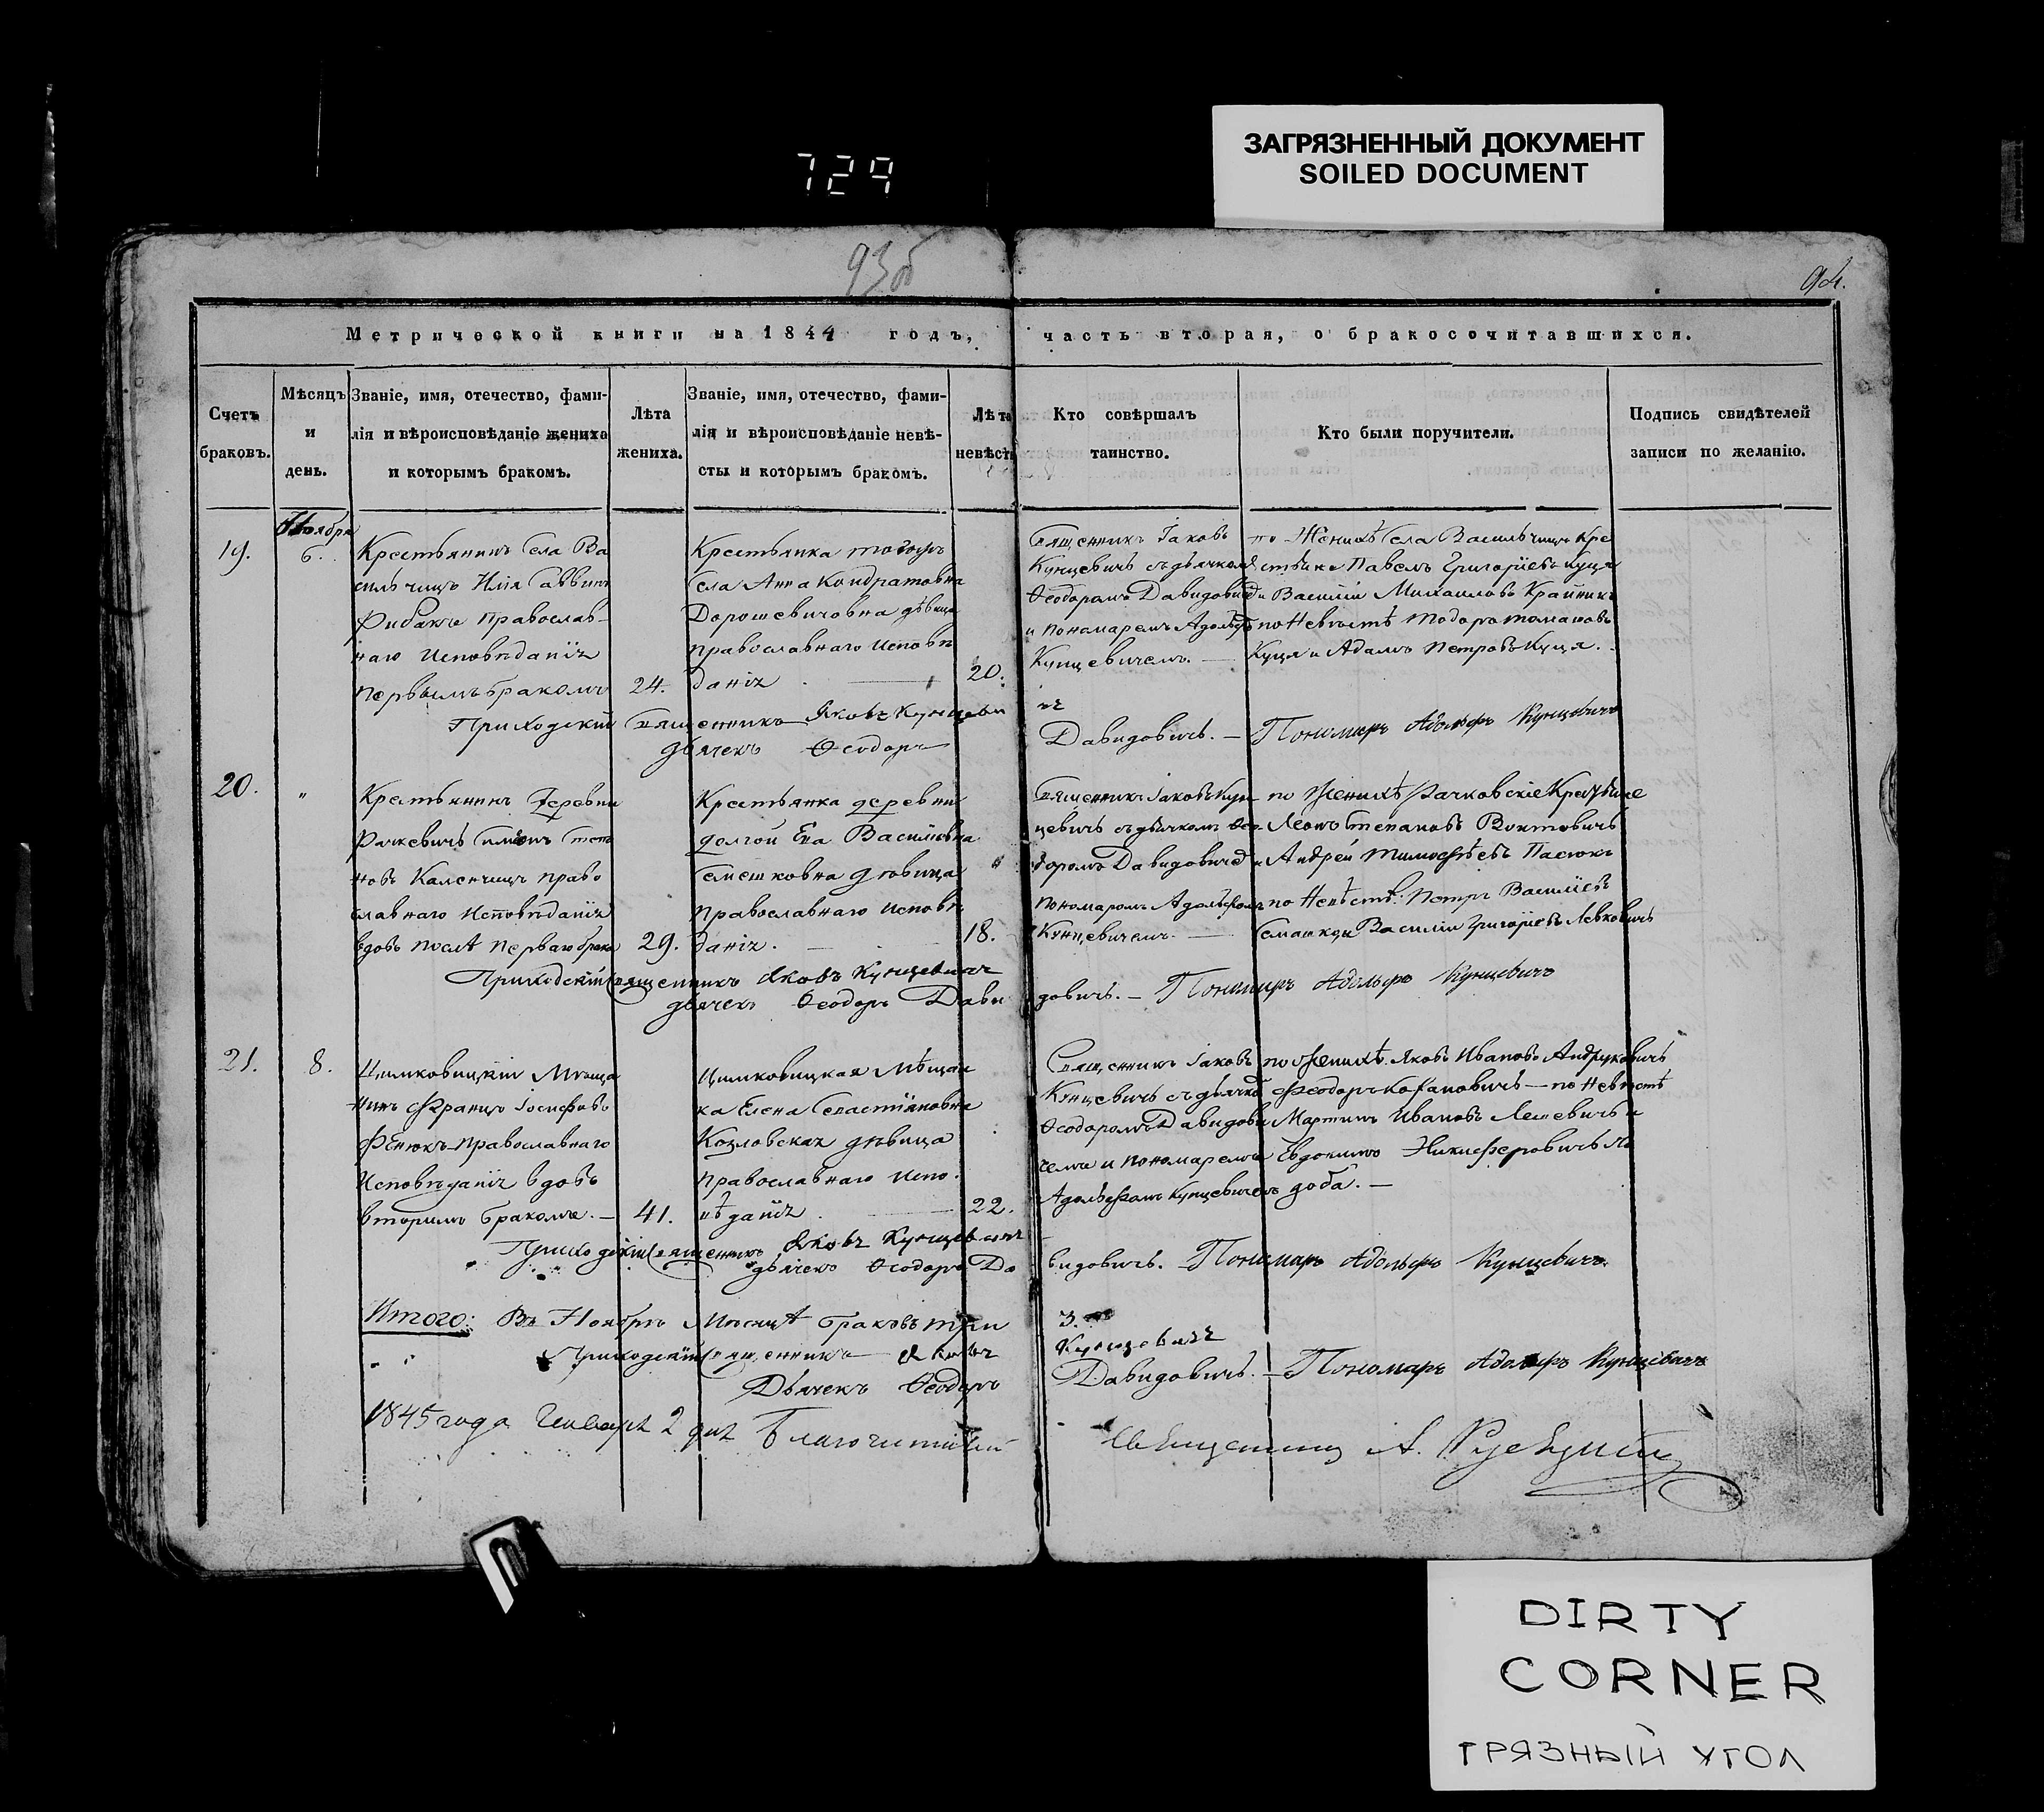 ЗАГРЯЗНЕННЫЙ ДОКУМЕНТ
SOILED DOCUMENT
729
93об
94.
Метрической книги на 1844 годъ, часть вторая, о бракосочитавшихся.
Счетъ браковъ.
Мѣсяцъ и день.
Званіе, имя, отечество, фами-
лія и вѣроисповѣданіе жениха
и которымъ бракомъ.
Лѣта жениха.
Званіе, имя, отечество, фами-
лія и вѣроисповѣданіе невѣ-
сты и которымъ бракомъ.
Лѣта невѣсты
Кто совѣршалъ таинство.
Кто были поручители.
Подпись свидѣтелей
записи по желанію.
19.
Ноября
6.
Крестьянинъ Села Ва
сильчицъ Илія Саввинъ
Рибакъ Православ-
наго Исповѣданія
первымъ бракомъ
24.
Крестьянка тогожъ
Села Анна Кондратовна
Дорошевичовна дѣвица
православнаго Исповѣ
данія
20.
Священникъ Іаковъ
Кунцевичъ съ дьячкомъ
Ѳеодоромъ Давидовиче
и Пономаремъ Адольфо
Кунцевичемъ. —
по Женихѣ Села Васильчицъ Кре
стьяне Павелъ Григоріевъ Куця
и Василій Михаиловъ Крайникъ
по Невѣстѣ Тодоръ Романовъ
Куця и Адамъ Петровъ Куця.
Приходскій Священникъ Яковъ Кунцеви чъ
дьячекъ Ѳеодоръ Давидовичъ. — Пономарь Адольфъ Кунцевичъ
20.
"
Крестьянинъ Деревни
Рачкевичъ Симеонъ Степа
новъ Каленчицъ право
славнаго Исповѣданія
вдовъ послѣ перваго брака
29.
Крестьянка деревни
долгой Ева Василіевна
Семешковна дѣвица
Православнаго Исповѣ
данія.
18.
Священникъ Іаковъ Кун
цевичъ съ дьячкомъ Ѳео
доромъ Давидовичемъ и
пономаромъ Адольфомъ
Кунцевичемъ. —
по Женихѣ Рачковскіе Крестьяне
Леонъ Степановъ Воктовичъ
Андрей Тимофѣевъ Пасюкъ
по Невѣстѣ: Петръ Василіевъ
Семашко и Василій Григоріевъ Левковичъ
Приходскій Священникъ Яковъ Кунцевичъ
дьячекъ Ѳеодоръ Дави довичъ. — Пономарь Адольфъ Кунцевичъ
21.
8.
Цимковицкій Мѣща
нинъ Францъ Іосифовъ
Фенюкъ православнаго
Исповѣданія вдовъ
вторимъ бракомъ. —
41.
Цимковицкая Мѣщан
ка Елена Севастіяновна
Козловская дѣвица
православнаго Испо
вѣданія
22.
Священникъ Іаковъ
Кунцевичъ съ дьячко
Ѳеодоромъ Давидови
чемъ и пономаремъ
Адольфомъ Кунцевичемъ
по Женихѣ. Яковъ Ивановъ Андруковичъ
Феодоръ Кохановичъ — по Невѣстѣ
Мартинъ Ивановъ Лешевичъ и
Евдокимъ Никиферовичъ Ло
доба. —
Приходскій Священникъ Яковъ Кунцевичъ
дьячекъ Ѳеодоръ Да видовичъ. Пономарь Адольфъ Кунцевичъ.
Итого: Въ Ноябрѣ Мѣсяцѣ браковъ три 3.
Приходскій Священникъ Яковъ Кунцевичъ
Дьячекъ Ѳеодоръ Давидовичъ. — Пономарь Адольфъ Кунцевичъ
1845 года Генваря 2 дня Благочинный Священникъ А.
DIRTY
CORNER
ГРЯЗНЫЙ УГОЛ